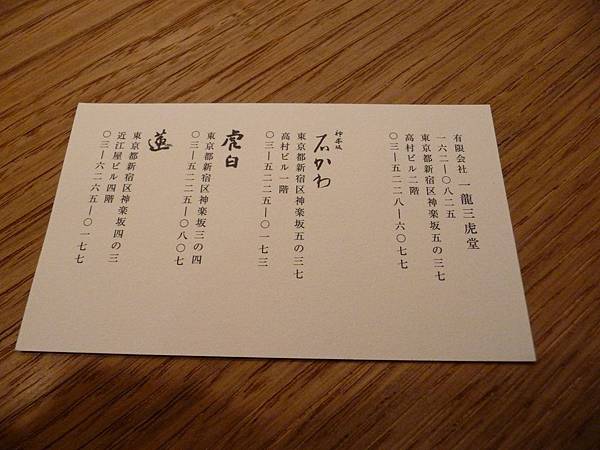 有限会社 一龍三虎堂
一六二―〇八二五
東京都新宿区神楽坂五の三七
高村ビル二階
〇三―五二二八―六〇七七
神楽坂
石かわ
東京都新宿区神楽坂五の三七
高村ビル一階
〇三―五二二五―〇一七三
虎白
東京都新宿区神楽坂三の四
〇三―五二二五―〇八〇七
蓮
東京都新宿区神楽坂四の三
近江屋ビル四階
〇三―六二六五―〇一七七